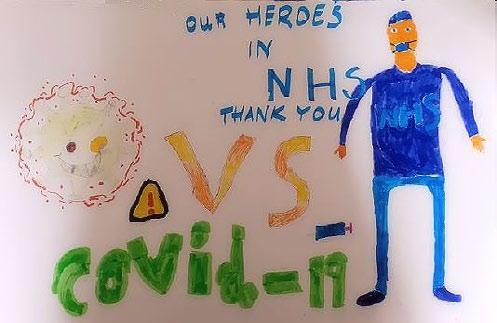 OUR HEROES
IN
NHS
THANK YOU
NHS
VS
!
COVID-19